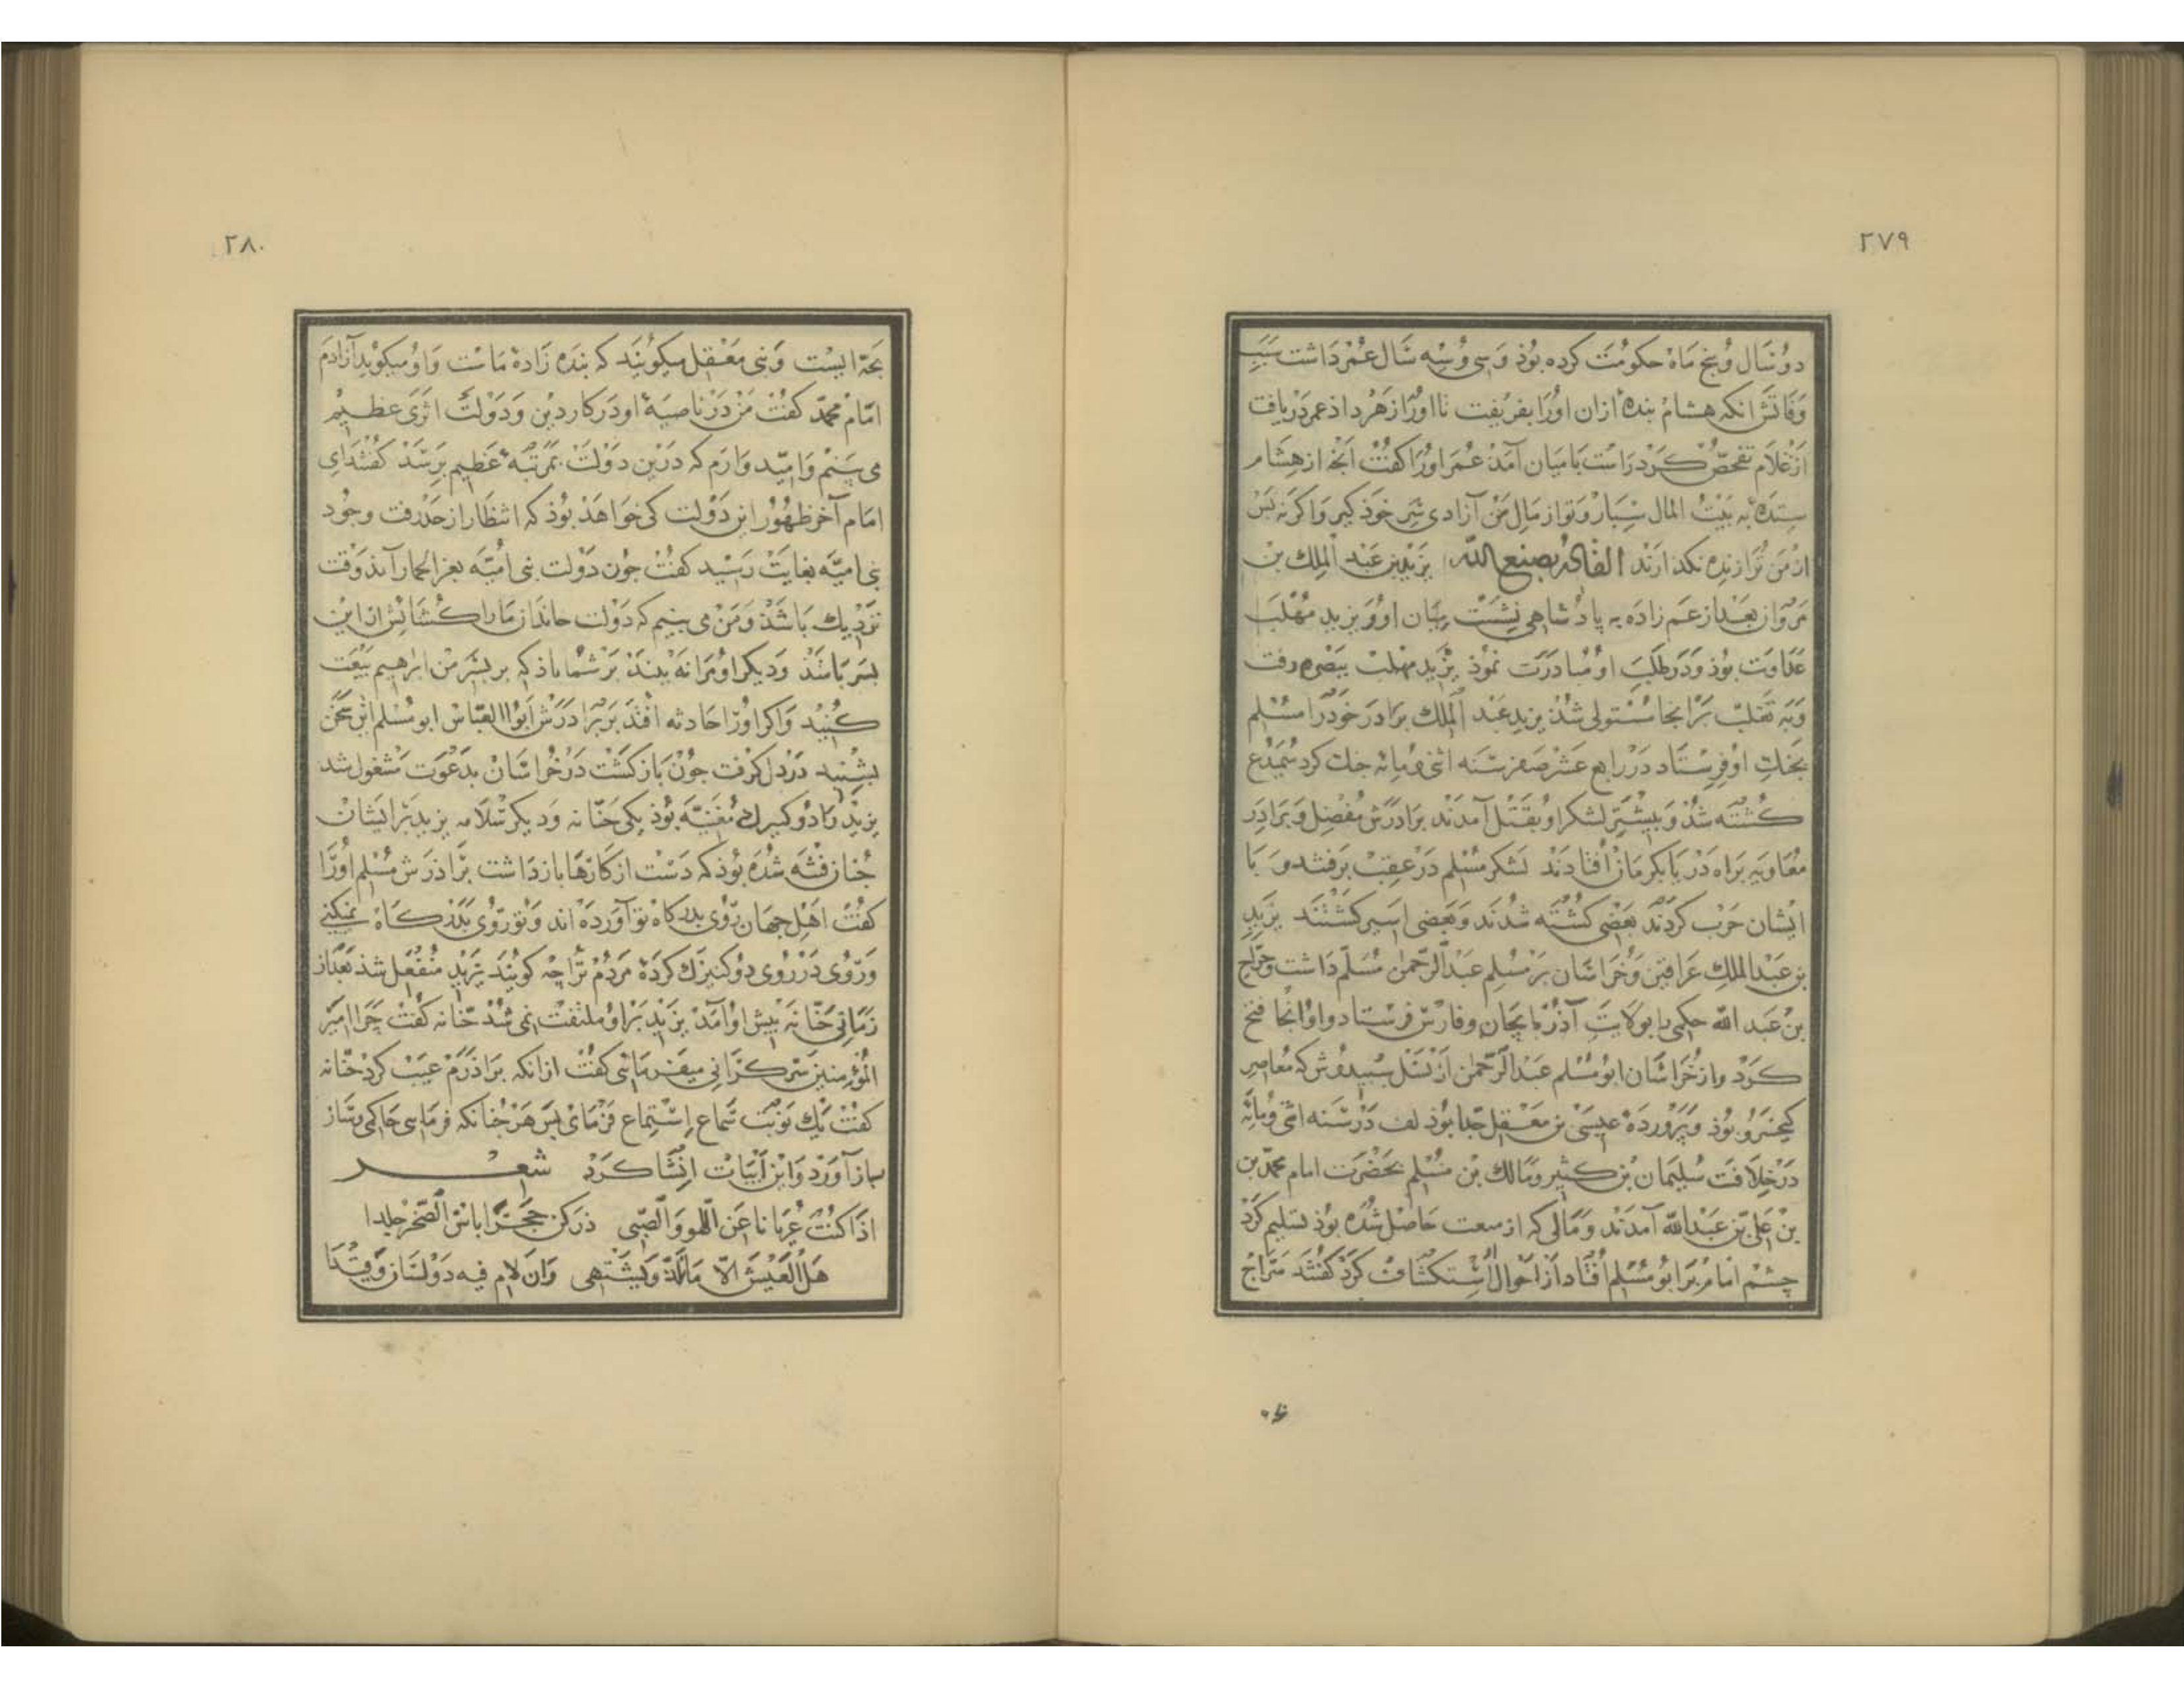 ٢٧٩
دو سال و پنج ماه حکومت کرده بوذ و سی و سه سال عمر داشت سبب
وفاتش انکه هشام بندهٔ ازان او را بفریفت تا او را زهر داذ عمر دریافت
از غلام تفحص کرد راست با میان آمد عمر او را کفت آنچه از هشام
ستدهٔ به بیت المال سپار و تو از مال من آزادی سر خوذ کیر و اکر نه پس
از من ترا زنده نکذارند القادر بصنع الله یزید بن عبد الملک بن
مروان بعد از عم زاده به پادشاهی نشست میان او و یزید مهلب
عداوت بوذ و در طلب او مبادرت نموذ یزید مهلب ببصره رفت
و به تغلب بر آنجا مستولی شذ یزید عبد الملک برادر خوذ را مسلم
بجنک او فرستاد در رابع عشر صفر سنه اثنی و مایه جنک کرد سمیدع
کشته شذ و بیشتر لشکر او بقتل آمدند برادرش مفضل و برادر
معاویه براه دریا بکرمان افتادند لشکر مسلم در عقب برفتند و با
ایشان حرب کردند بعضی کشته شدند و بعضی اسیر کشتند یزید
بن عبد الملک عراقین و خراسان بر مسلم عبد الرحمن مسلم داشت و جراح
بن عبد الله حکمی را بولایت آذربایجان و فارس فرستاد و او آنجا فتح
کرد و از خراسان ابو مسلم عبد الرحمن از نسل سپیدوش که معاصر
کیخسرو بوذ و پروردهٔ عیسی بن معقل جد ابو دلف در سنه اثنی و مایه
در خلافت سلیمان بن کثیر و مالک بن مسلم بحضرت امام محمد بن
بن علی بن عبد الله آمدند و مالی که از بیعت حاصل شده بوذ تسلیم کرد
چشم امام بر ابو مسلم افتاد از احوال استکشاف کرد کفتند سراج
٢٨٠
بچه ایست و بنی معقل میکویند که بنده زادهٔ ماست و او میکوید آزادم
امام محمد کفت من در ناصیهٔ او در کار دین و دولت اثری عظیم
می بینم و امید وارم که درین دولت بمرتبهٔ عظیم برسد کفتند ای
امام آخر ظهور این دولت کی خواهد بوذ که انتظار از حد رفت و جور
بنی امیه بغایت رسید کفت جون دولت بنی امیه بعز الحمار آید وقت
نزدیک باشذ و من می بینم که دولت خاندان ما را کشایش از این
پسر باشذ و دیکر او مرا نه بیند بر شما باذ که بر پسر من ابراهیم بیعت
کنید و اکر او را حادثه افتد بر برادرش ابو العباس ابو مسلم این سخن
بشنید در دل کرفت جون باز کشت در خراسان بدعوت مشغول شد
یزید را دو کنیزک مغنیه بوذ یکی حنانه و دیکر سلامه یزید بر ایشان
جنان فتنه شده بوذ که دست از کارها باز داشت برادرش مسلم او را
کفت اهل جهان روی بدرکاه تو آورده اند و تو روی بدرکاه نمیکنی
و روی در روی دو کنیزک کردهٔ مردم ترا چه کویند یزید منفعل شذ بعد از
زمانی حنانه پیش او آمد یزید بر او ملتفت نمی شذ حنانه کفت چرا امیر
المؤمنین سرکرانی میفرمائی کفت از انکه براذرم عیب کرد حنانه
کفت یک نوبت سماع استماع فرمای پس هر جنانکه فرمایی حاکمی ساز
ساز آورد و این ابیات انشا کرد شعر
اذا کنت عزیانا عن اللهو والصبی ذرکن حجرا یابس الصخر جلدا
هل العیش الا ما تلذ و یشتهی وان لام فیه دولشنان و فندا